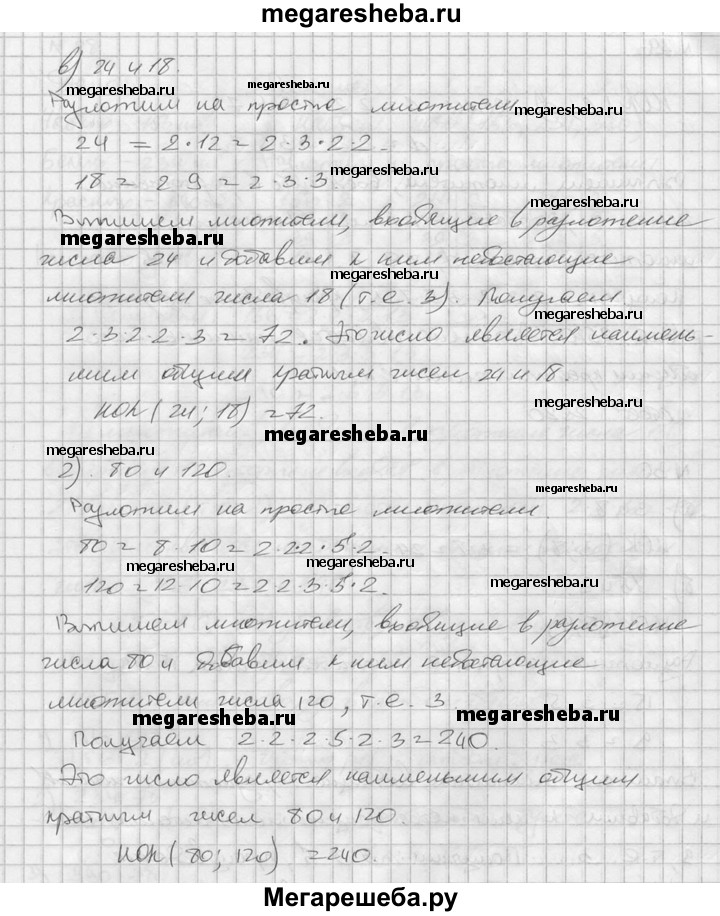 megaresheba.ru
в) 24 и 18.
megaresheba.ru megaresheba.ru
Разложим на простые множители
24 = 2·12 = 2·3·2·2.
megaresheba.ru
18 = 2 9 = 2·3·3.
megaresheba.ru
Выпишем множители, входящие в разложение
megaresheba.ru
числа 24 и добавим к ним недостающие
megaresheba.ru
множители числа 18 (т.е. 3). Получаем
2·3·2·2·3 = 72. Это число является наимень-
шим общим кратным чисел 24 и 18.
НОК (24; 18) = 72.
megaresheba.ru
megaresheba.ru megaresheba.ru
г). 80 и 120.
Разложим на простые множители.
80 = 8·10 = 2·2·2·5·2.
megaresheba.ru megaresheba.ru
120 = 12·10 = 2·2·3·5·2.
Выпишем множители, входящие в разложение
числа 80 и добавим к ним недостающие
множители числа 120, т.е. 3.
megaresheba.ru megaresheba.ru
Получаем 2·2·2·5·2·3 = 240.
Это число является наименьшим общим
кратным чисел 80 и 120.
НОК (80; 120) = 240.
Мегарешеба.ру